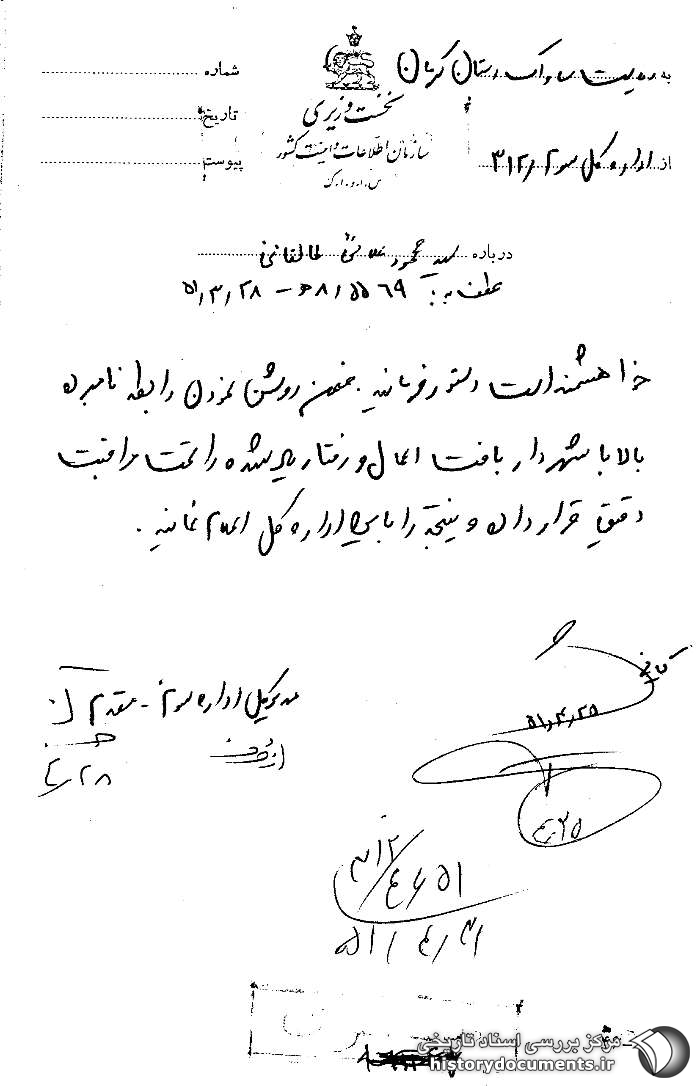 به مدیریت ساواک استان کرمان
شماره
نخست وزیری
تاریخ
سازمان اطلاعات و امنیت کشور
س.ا.و.ا.ک
پیوست
از اداره کل سوم ۳۱۲
درباره سید محمود علائی طالقانی
عطف به: ۵۵۶۹/ﻫ۸ – ۵۱/۳/۲۸
خواهشمند است دستور فرمائید ضمن روشن نمودن رابطه نامبرده
بالا با شهردار بافت اعمال و رفتار یاد شده را تحت مراقبت
دقیق قرار داده و نتیجه را باین اداره کل اعلام نمایند.
مدیرکل اداره سوم - مقدم
از طرف
۴/۲۸
۵۱/۴/۲۵
۴/۲۵
۳۱۲/۴۶۵۱
۵۱/۴/۳۱
مرکز بررسی اسناد تاریخی
historydocuments.ir